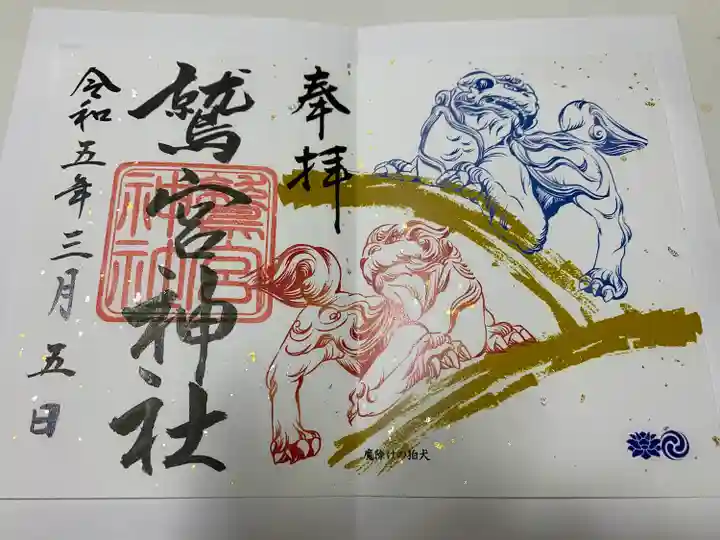 奉拝
鷲宮神社
鷲宮
神社
令和五年三月五日
魔除けの狛犬